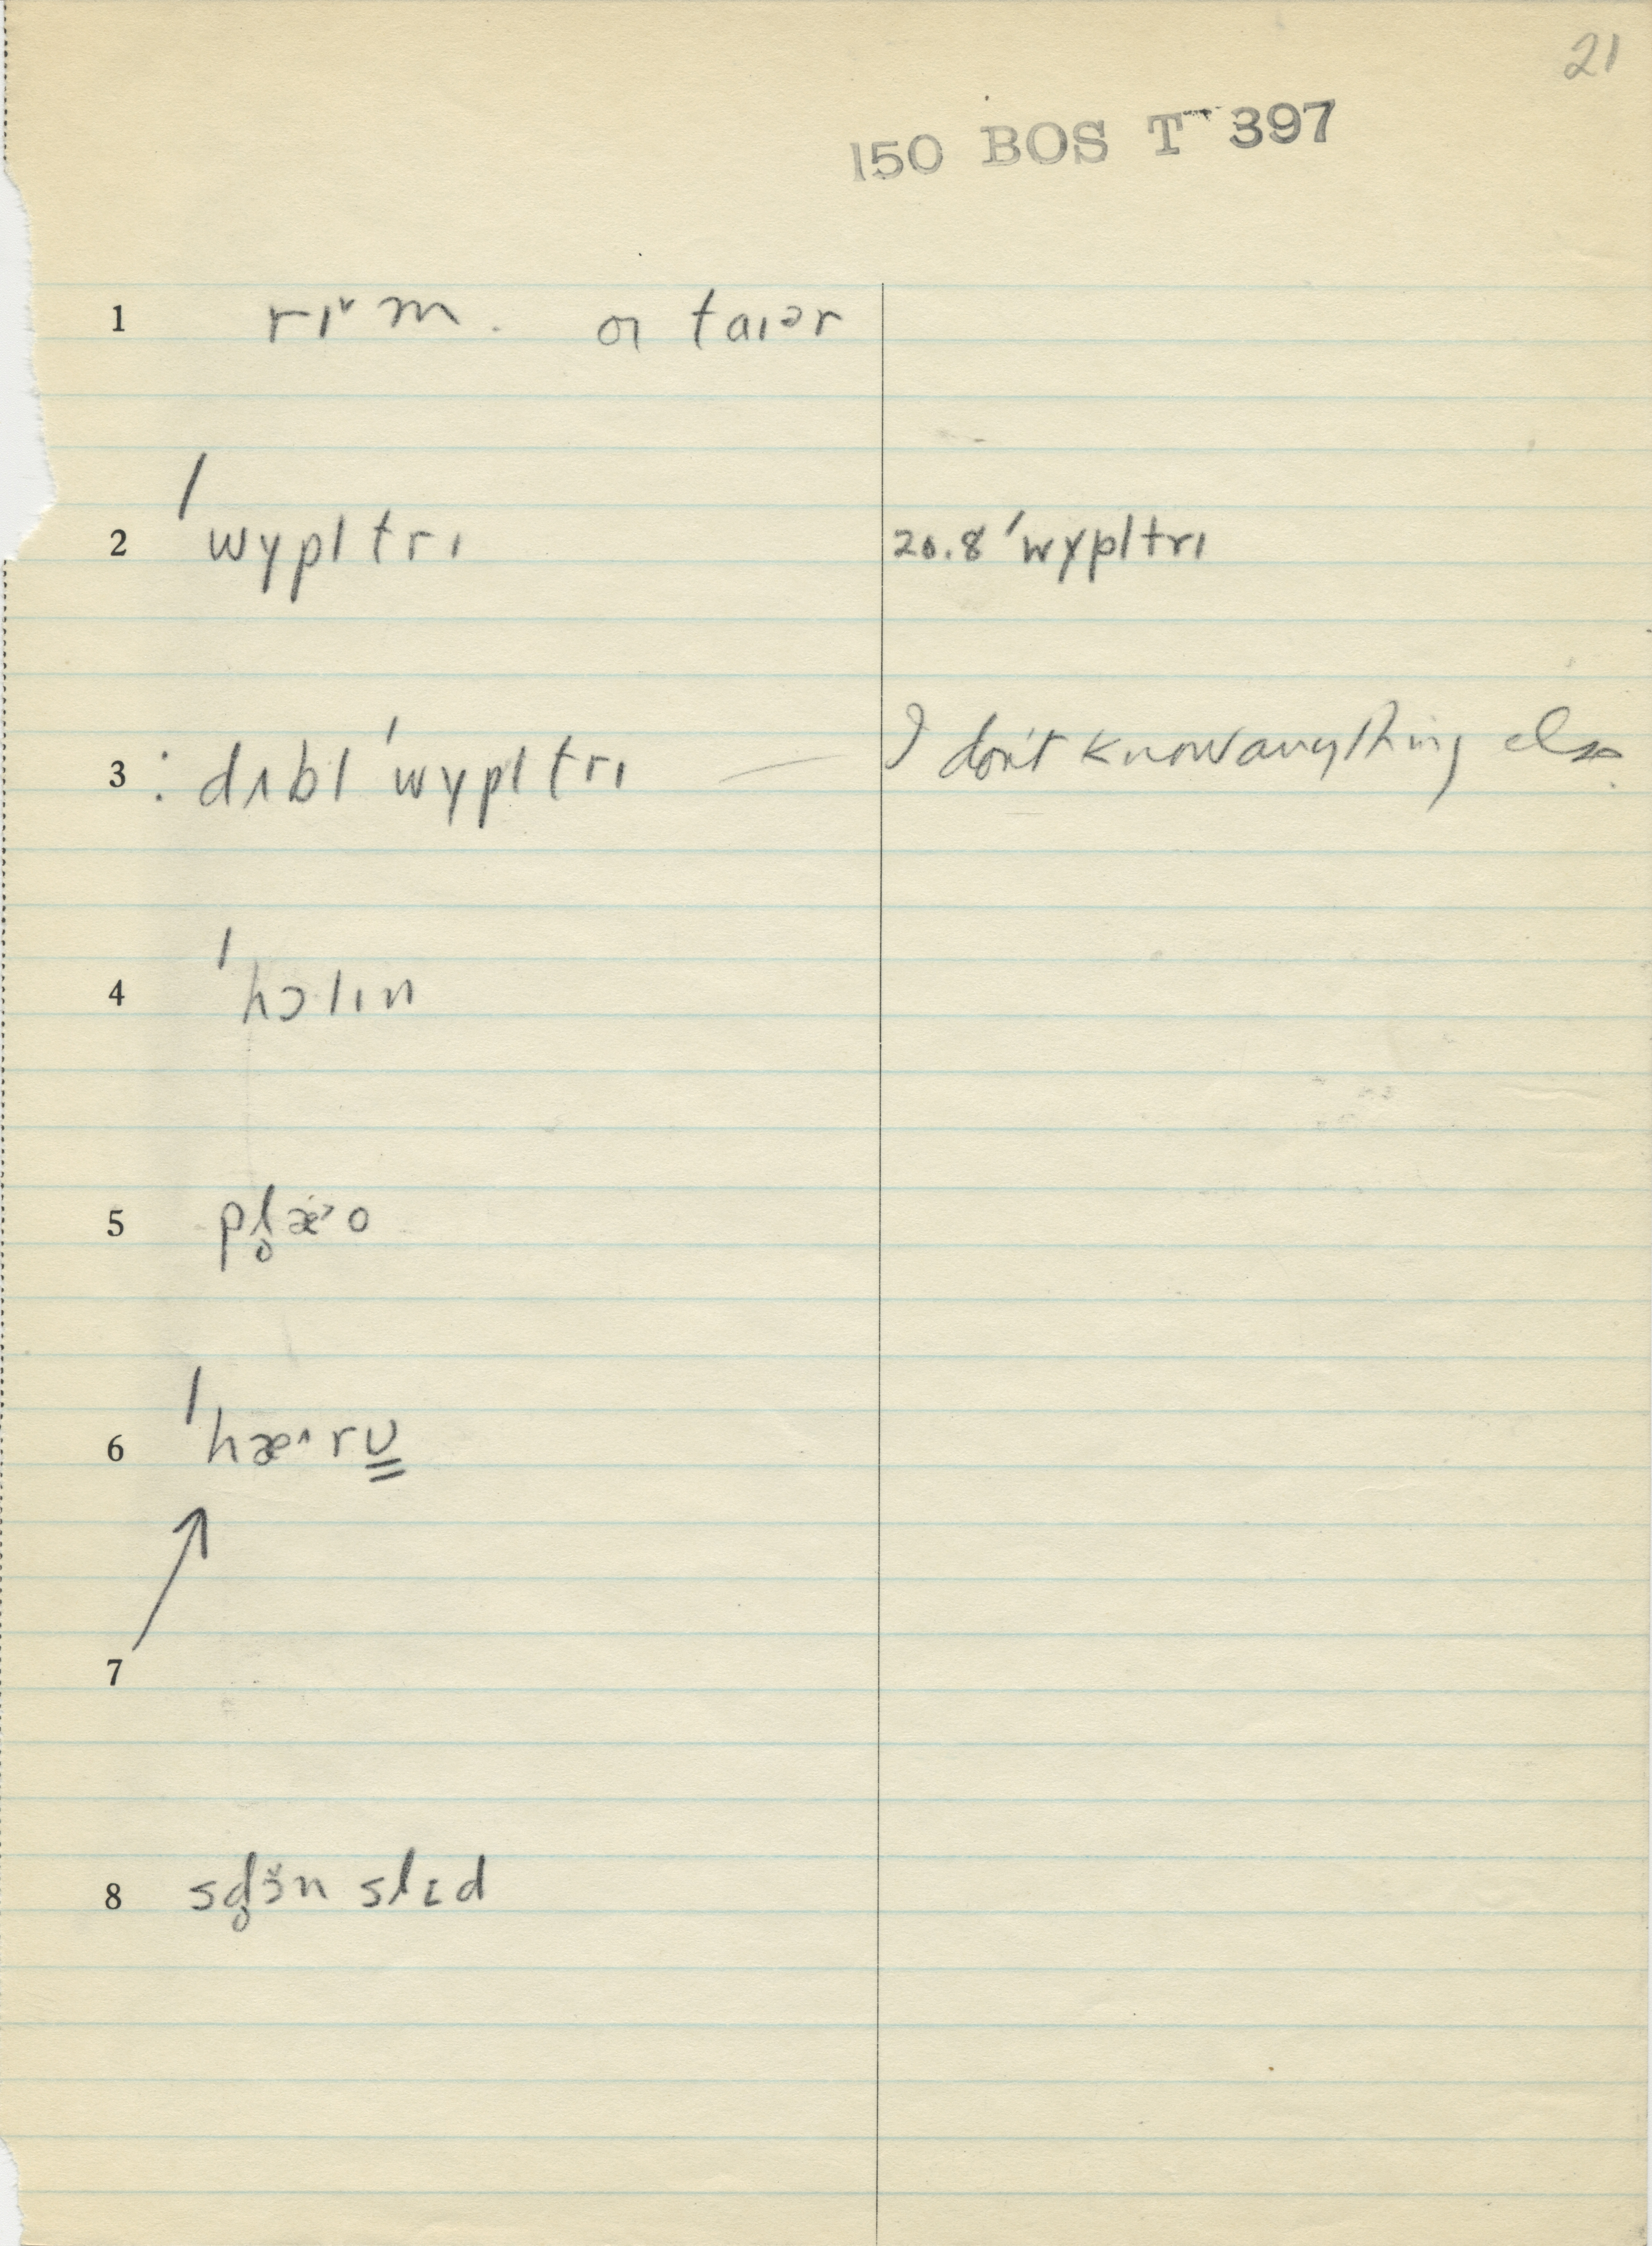 21
150 BOS T 397
1 rɪ˅m. ɑɪ taɪər
2 ˈwɣpltrɪ 20.8 ˈwɣpltrɪ
3 : dʌbl ˈwɣpltrɪ — I don't know anything else
4 ˈhɔlɪn
5 pl̥æ˃o
6 ˈhæ˄rʊ̳
7
8 sd̥ɔ̌n slɛd